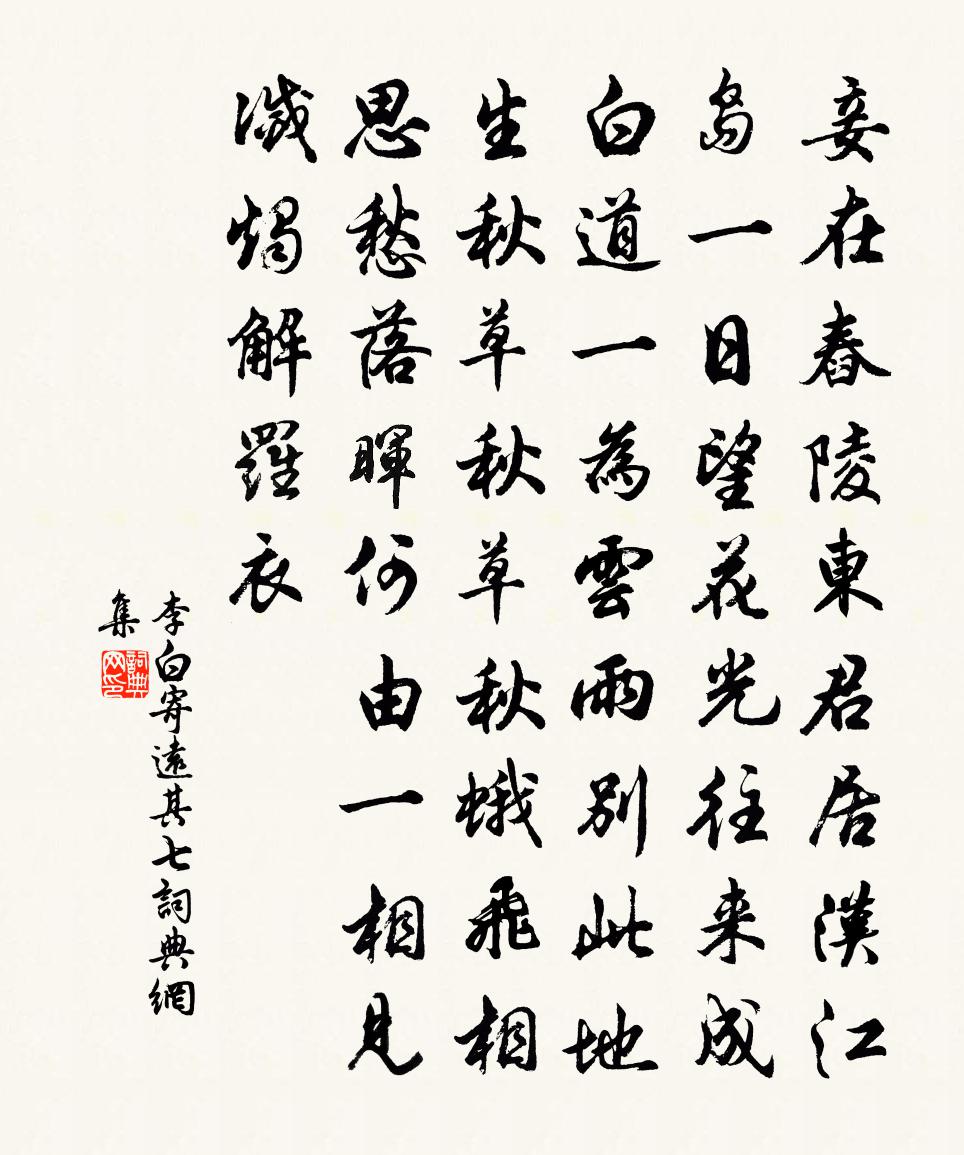 妾在舂陵東君居漢江
島一日望花光往来成
白道一為雲雨別此地
生秋草秋草秋蛾飛相
思愁落暉何由一相見
滅燭解羅衣
李白寄遠其七詞典網
集
詞典
网印